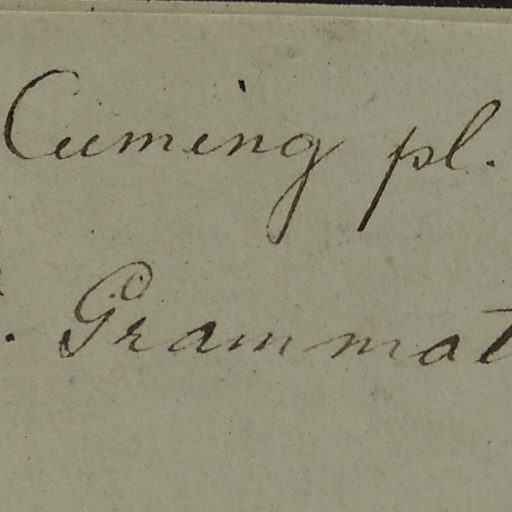 Cuming pl.
. Grammat